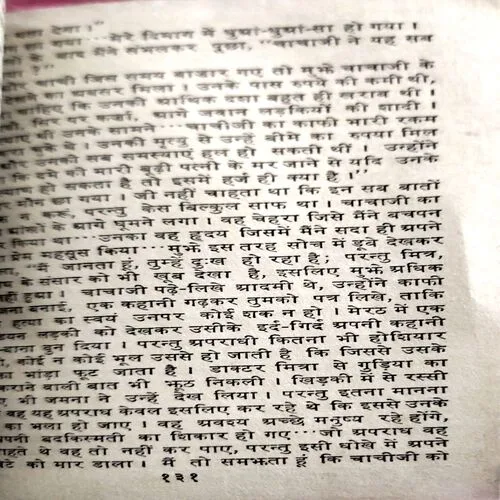 चला देगा।"
गया ... मेरे दिमाग में धुआं-धुआं-सा हो गया।
के बाद मैंने संभलकर पूछा, "चाचाजी ने यह सब
?"
चाची जिस समय बाजार गए तो मुझे चाचाजी के
अवसर मिला। उनके पास रुपये की कमी थी,
चाहिए कि उनकी आर्थिक दशा बहुत ही खराब थी।
सिर पर कर्जा, आगे जवान लड़कियों की शादी।
थी उनके सामने ... चाचीजी का काफी भारी रकम
थे। उनकी मृत्यु से उन्हें बीमे का रुपया मिल
उनकी सब समस्याएं हल हो सकती थीं। उन्होंने
कि दमे की मारी बूढ़ी पत्नी के मर जाने से यदि उनके
हो सकता है तो इसमें हर्ज ही क्या है।"
मौन छा गया। जी नहीं चाहता था कि इन सब बातों
न करूं, परन्तु केस बिल्कुल साफ था। चाचाजी का
आंखों के आगे घूमने लगा। वह चेहरा जिसे मैंने बचपन
किया था ... उनका वह हृदय जिसमें मैंने सदा ही अपने
प्रेम महसूस किया ... मुझे इस तरह सोच में डूबे देखकर
"मैं जानता हूं, तुम्हें दुःख हो रहा है; परन्तु मित्र,
के संसार को भी खूब देखा है, इसलिए मुझे अधिक
नहीं हुआ। चाचाजी पढ़े-लिखे आदमी थे, उन्होंने काफी
बनाई, एक कहानी गढ़कर तुमको पत्र लिखे, ताकि
हत्या का स्वयं उनपर कोई शक न हो। मेरठ में एक
लड़की को देखकर उसीके इर्द-गिर्द अपनी कहानी
-बाना बुन दिया। परन्तु अपराधी कितना भी होशियार
कोई न कोई भूल उससे हो जाती है कि जिससे उसके
का भांडा फूट जाता है। डाक्टर मित्रा से गुड़िया का
कराने वाली बात भी झूठ निकली। खिड़की में से रस्सी
ए भी जमना ने उन्हें देख लिया। परन्तु इतना मानना
वह यह अपराध केवल इसलिए कर रहे थे कि इससे उनके
का भला हो जाए। वह अवश्य अच्छे मनुष्य रहे होंगे,
अपनी बदकिस्मती का शिकार हो गए ... जो अपराध वह
चाहते थे वह तो नहीं कर पाए, परन्तु इसी धोखे में अपने
बेटे को मार डाला। मैं तो समझता हूं कि चाचीजी को
१३१